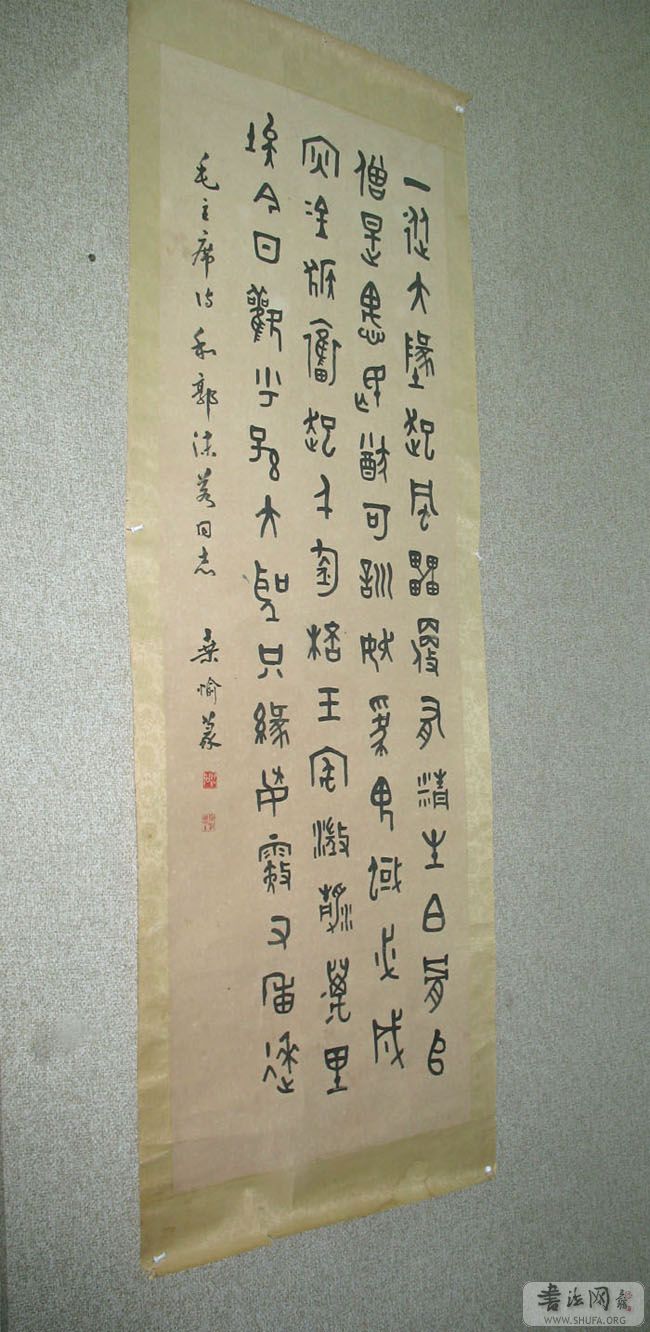 一從大地起風雷便有精生白骨堆
僧是愚氓猶可訓妖為鬼蜮必成
災金猴奮起千鈞棒玉宇澄清萬里
埃今日歡呼孫大聖只緣妖霧又重來
毛主席詩和郭沫若同志 桑愉篆
書法网
WWW.SHUFA.ORG